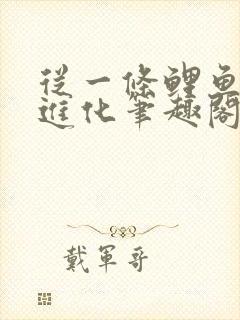 從一條鯉魚
進化筆趣閣
戴軍哥